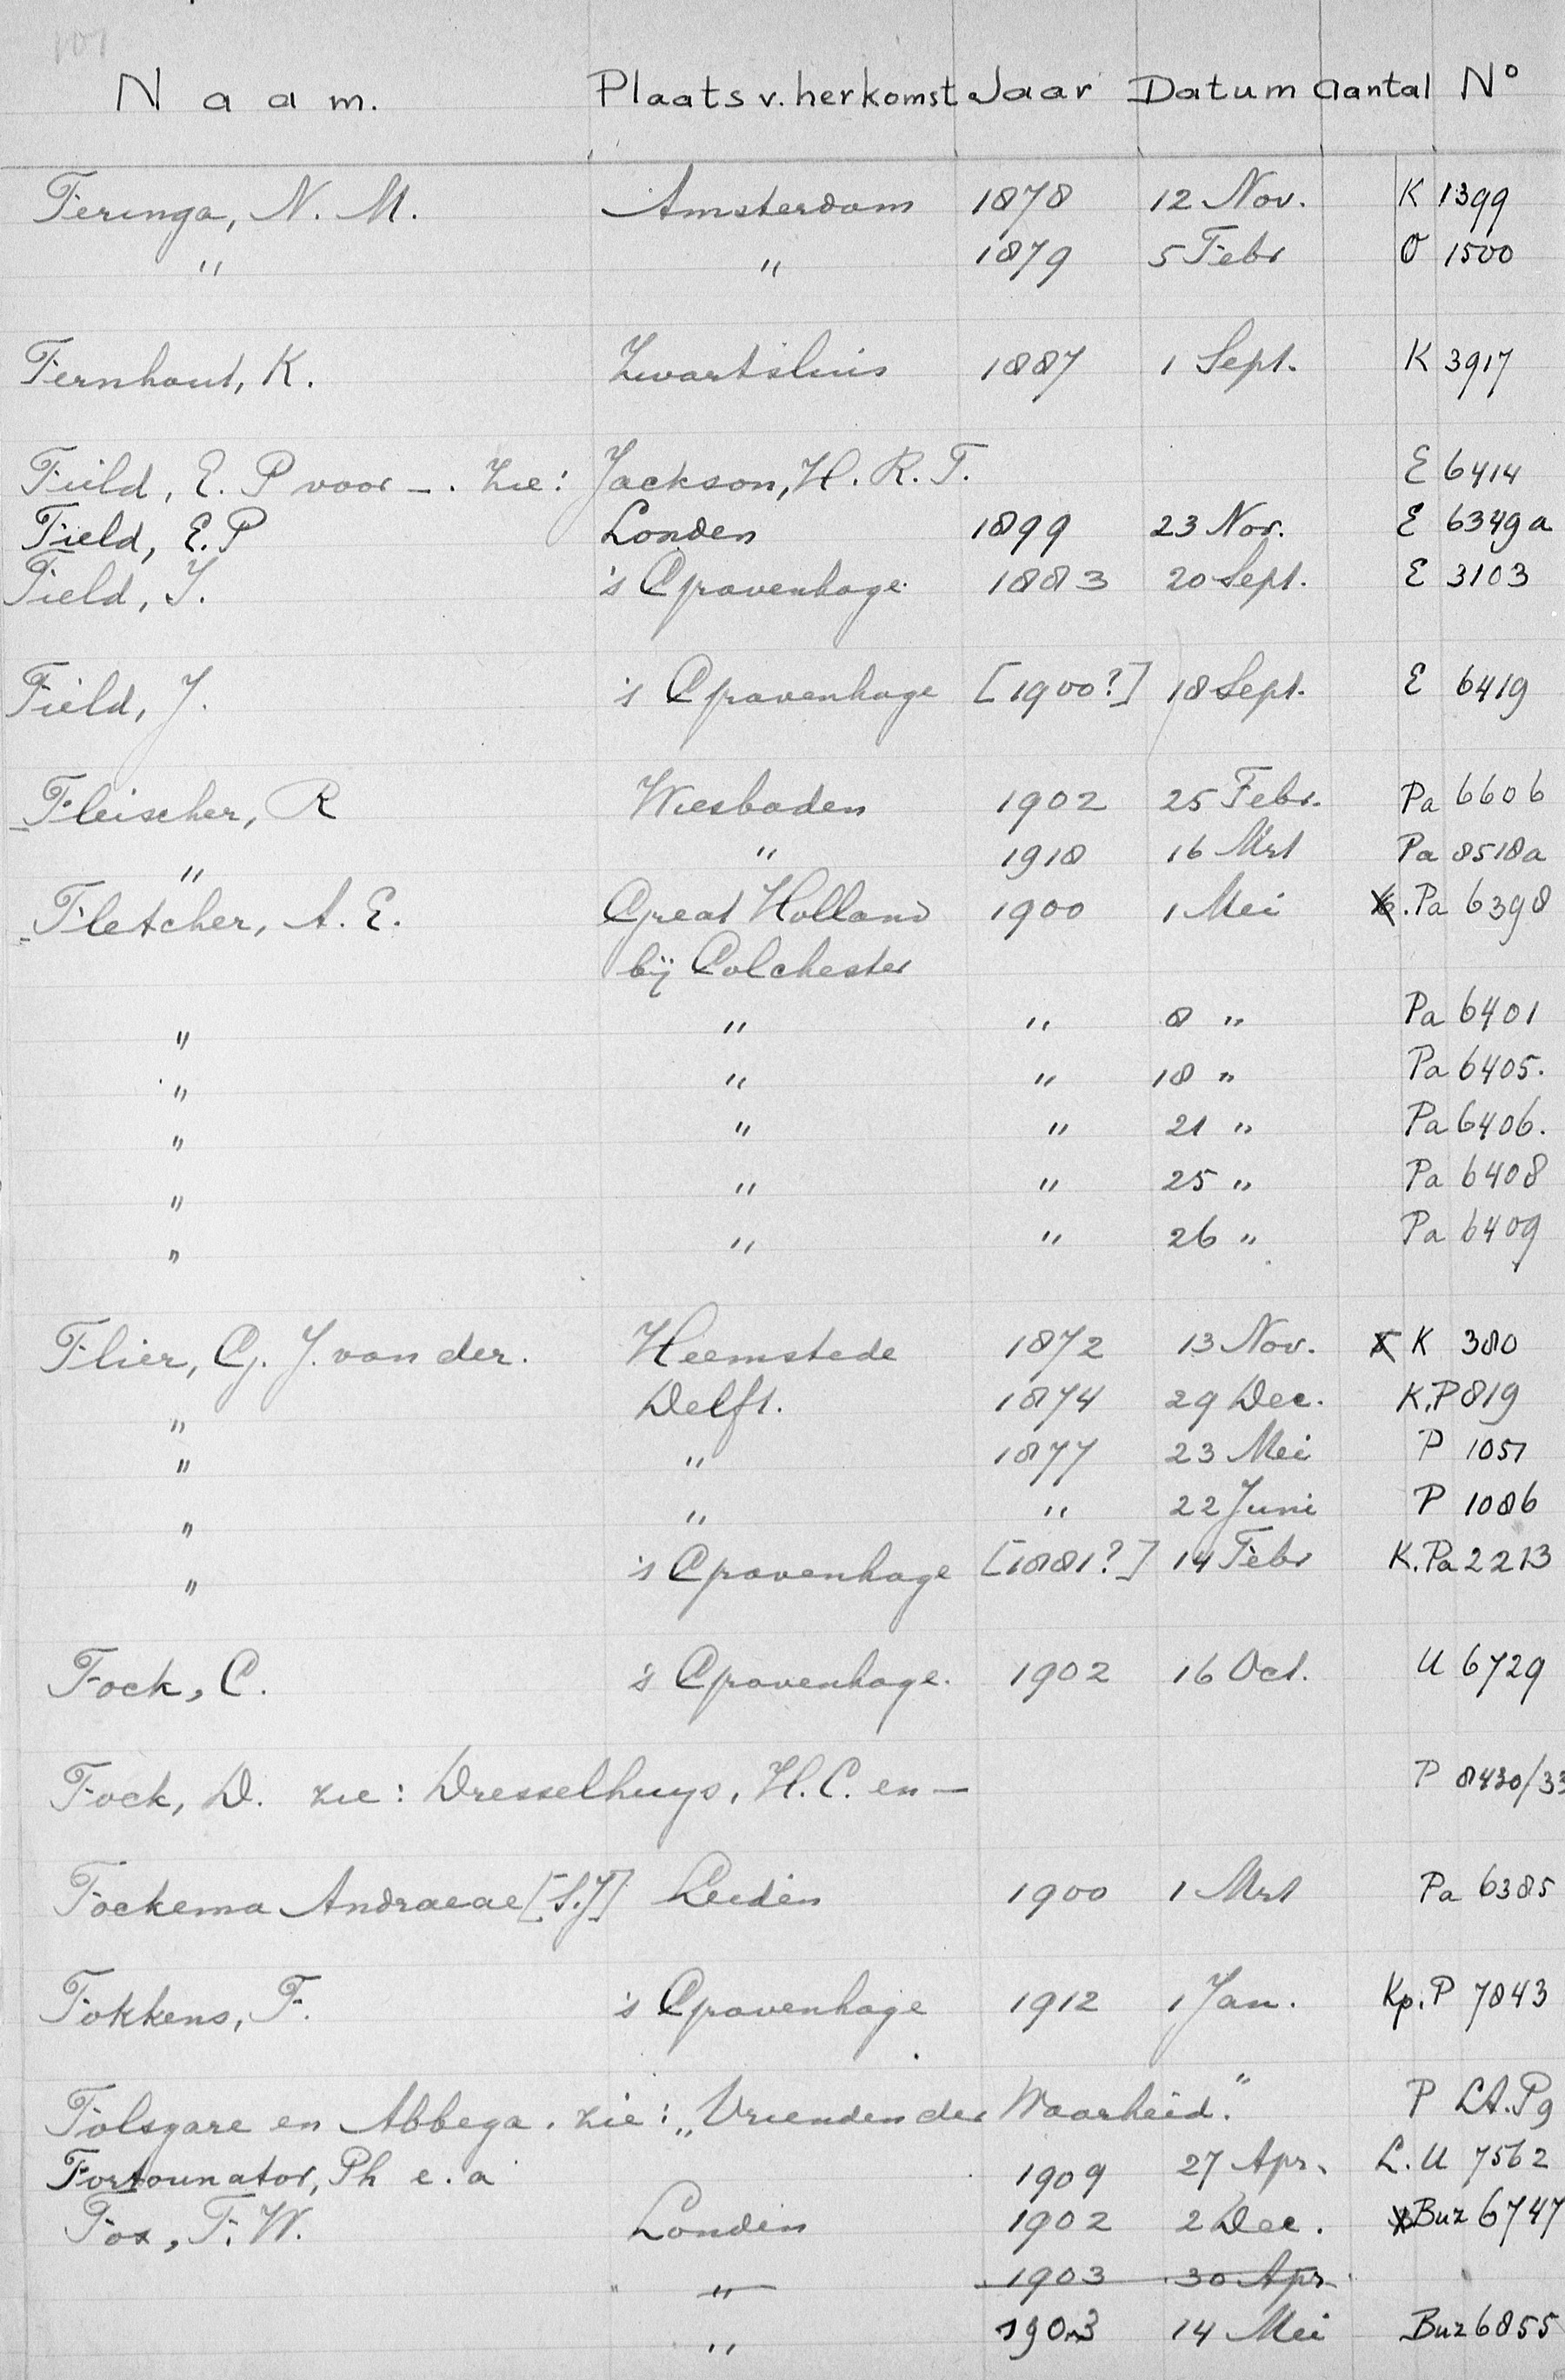 107
Naam. Plaats v. herkomst Jaar Datum Aantal Nº
Feringa, N. M. Amsterdam 1878 12 Nov. K 1399
" " 1879 5 Febr O 1500
Fernhout, K. Zwartsluis 1887 1 Sept. K 3917
Field, E. P voor —. Zie: Jackson, H. R. T. E 6414
Field, E. P Londen 1899 23 Nov. E 6349a
Field, J. 's Gravenhage 1883 20 Sept. E 3103
Field, J. 's Gravenhage [1900?] 18 Sept. E 6419
Fleischer, R Wiesbaden 1902 25 Febr. Pa 6606
" " 1918 16 Mrt Pa 8518a
Fletcher, A. E. Great Holland 1900 1 Mei Pa 6398
bij Colchester
" " " 8 " Pa 6401
" " " 18 " Pa 6405.
" " " 21 " Pa 6406.
" " " 25 " Pa 6408
" " " 26 " Pa 6409
Flier, G. J. van der. Heemstede 1872 13 Nov. K 380
" Delft. 1874 29 Dec. K.P 819
" " 1877 23 Mei P 1051
" " " 22 Juni P 1086
" 's Gravenhage [1881?] 14 Febr K.Pa 2213
Fock, C. 's Gravenhage. 1902 16 Oct. U 6729
Fock, D. zie: Dresselhuys, H. C. en — P 8430/33
Fockema Andraeae [S.J] Leiden 1900 1 Mrt Pa 6385
Fokkens, F. 's Gravenhage 1912 1 Jan. Kp. P 7843
Folsgare en Abbega. zie: „Vrienden der Waarheid." P LA. Pg
Fortounator, Ph e. a 1909 27 Apr. L. U 7562
Fox, F. W. Londen 1902 2 Dec. Buz 6747
" " 1903 30 Apr.
" 1903 14 Mei Buz 6855